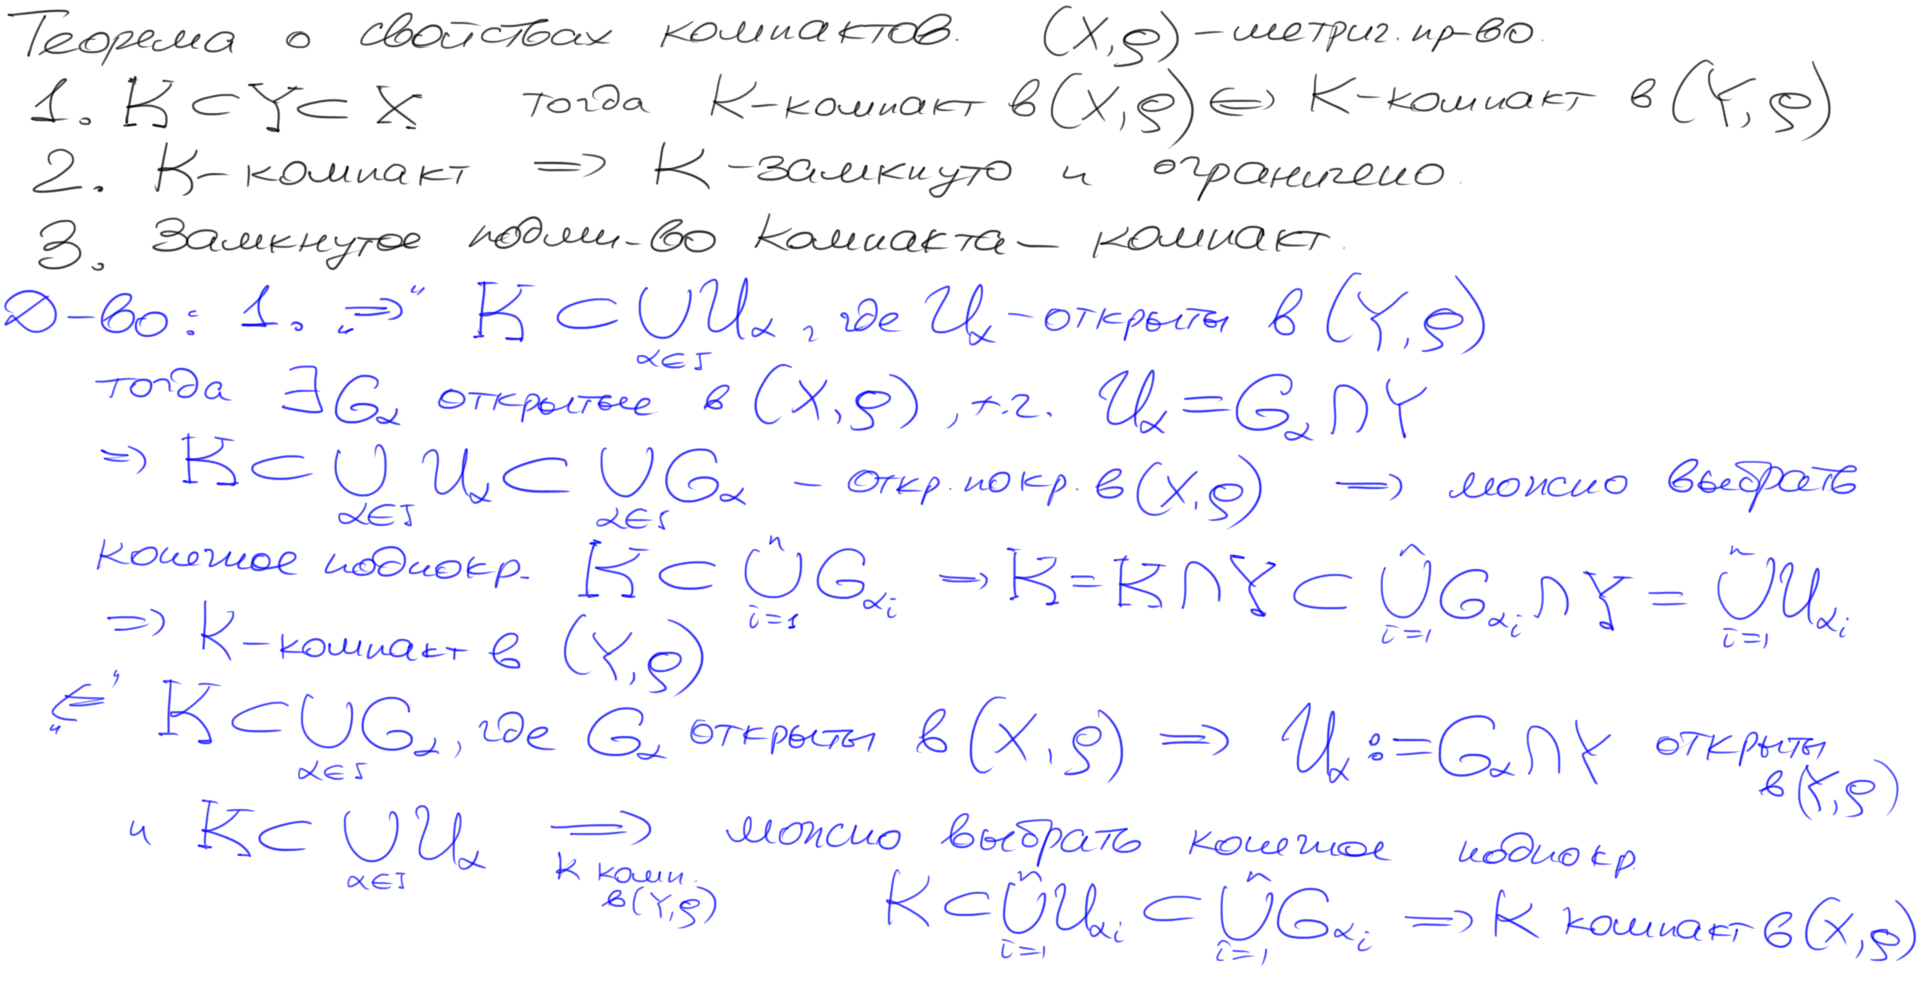 Теорема о свойствах компактов. (X,ρ) – метрич. пр-во.
1. K⊂Y⊂X тогда K-компакт в (X,ρ) ⇔ K-компакт в (Y,ρ)
2. K-компакт ⇒ K-замкнуто и ограничено.
3. Замкнутое подмн-во компакта – компакт.
Д-во: 1. „⇒“ K ⊂ ⋃_{α∈I} U_α, где U_α – открыты в (Y,ρ)
тогда ∃ G_α открытые в (X,ρ), т.ч. U_α = G_α ∩ Y
⇒ K ⊂ ⋃_{α∈I} U_α ⊂ ⋃_{α∈I} G_α – откр. покр. в (X,ρ) ⇒ можно выбрать
конечное подпокр. K ⊂ ⋃_{i=1}^{n} G_{α_i} ⇒ K = K∩Y ⊂ ⋃_{i=1}^{n} G_{α_i} ∩ Y = ⋃_{i=1}^{n} U_{α_i}
⇒ K-компакт в (Y,ρ)
„⇐“ K ⊂ ⋃_{α∈I} G_α, где G_α открыты в (X,ρ) ⇒ U_α := G_α ∩ Y открыты
в (Y,ρ)
и K ⊂ ⋃_{α∈I} U_α ⇒ можно выбрать конечное подпокр.
K комп.
в (Y,ρ)
K ⊂ ⋃_{i=1}^{n} U_{α_i} ⊂ ⋃_{i=1}^{n} G_{α_i} ⇒ K компакт в (X,ρ)